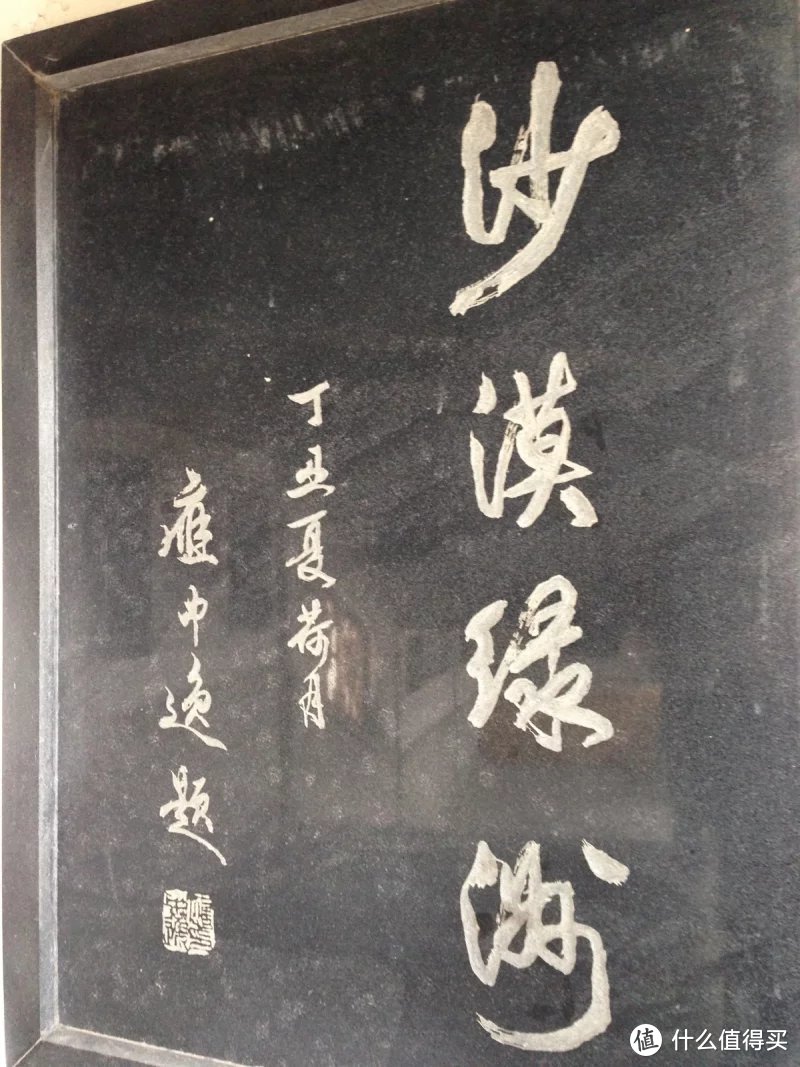 沙漠绿洲
丁丑夏荷月
应中逸题
值 什么值得买